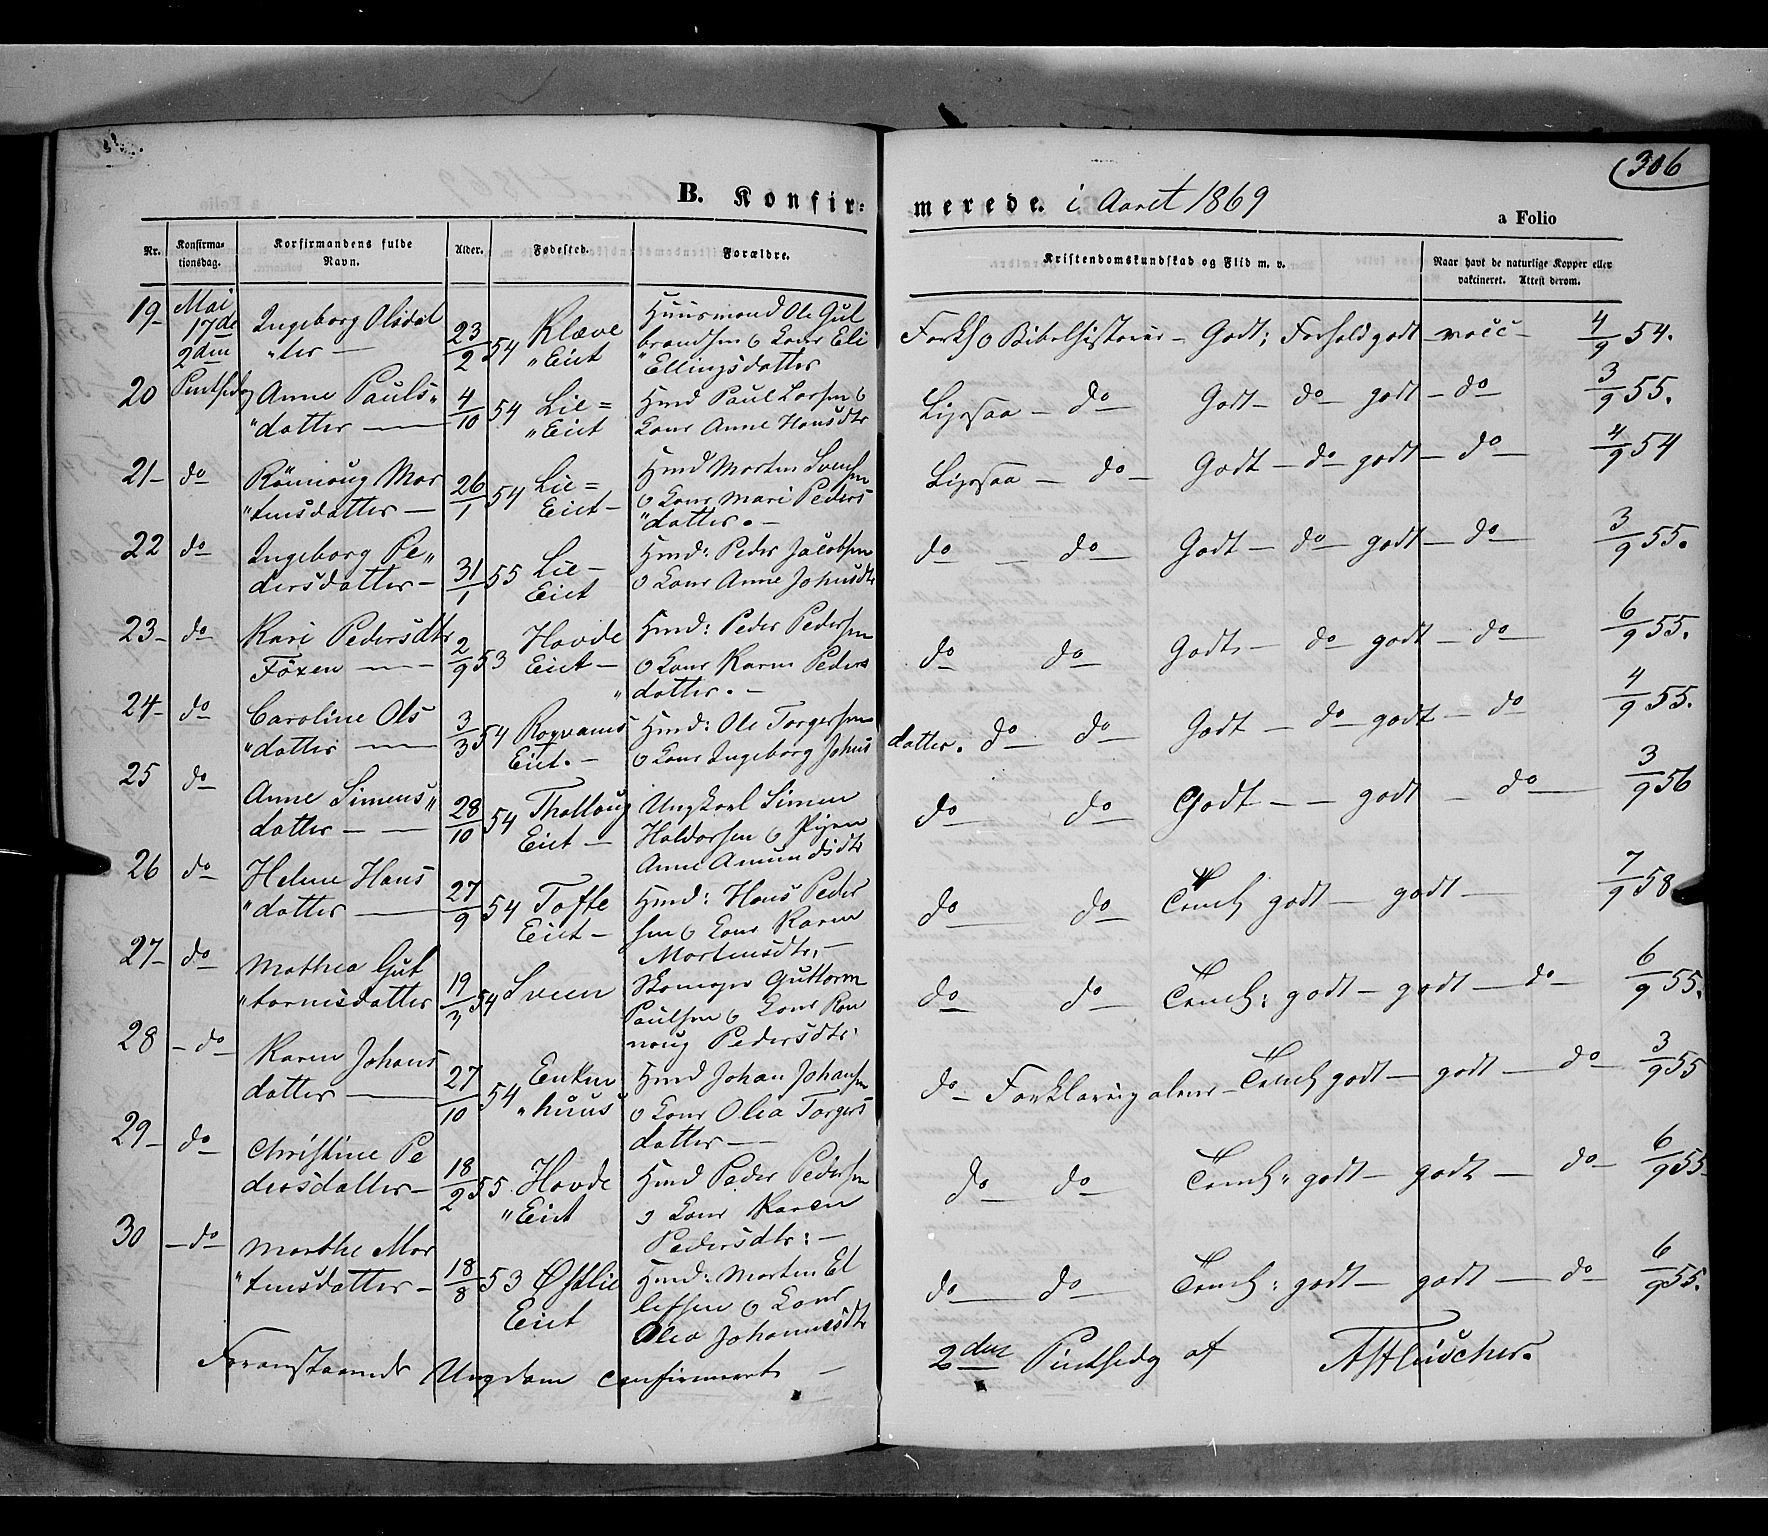 306
B. Konfir-
merede. i Aaret 1869
a Folio
Nr.
Konfirma-
tionsdag.
Korfirmandens fulde
Navn.
Alder.
Fødested.
Forældre.
Kristendomskundskab og Flid m. v.
Naar havt de naturlige Kopper eller
vakcineret. Attest derom.
19- Mai 17de Ingeborg Olsdat 23/2 54 Klæve Huusmand Ole Gul Godt; Forhold godt vacc- 4/9 54.
2den "ter — "Eiet brandsen o Kone Eli
Ellingsdatter
20 Pintsedag Anne Pauls" 4/10 54 Lie= Hmd Paul Larsen o do Godt - do godt - do 3/9 55.
"datter — "Eiet Kone Anne Hansdtr
21- do Mor 26/1 54 Lie= Hmd Morten Svensen do Godt - do godt - do 4/9 54
"tensdatter — Eiet - o Kone Mari Peders
"datter. -
22 do Ingeborg Pe" 31/1 55 Lie- Hmd: Peder Jacobsen do do Godt - do godt - do 3/9 55.
dersdatter - Eiet o Kone Anne Johnsdtr
23- do Kari Pedersdtr 2/9 53 Hovde Hmd: Peder Pedersen do do Godt - do godt - do 6/9 55.
Föxen — Eiet - o Kone Karen Peders
"datter. -
24- do Caroline Ols 3/3 54 Hmd: Ole Torgersen datter. do do Godt - do godt - do 4/9 55.
"datter — Eiet. - o Kone Ingeborg Johns
25 do Anne Simens" 28/10 54 Ungkarl Simen do do Godt - - godt - do 3/9 56
datter - - Eiet - Haldorsen o Pigen
Anne Amundsdtr
26 do Helene Hans 27/9 54 Tofte Hmd: Hans Peder do do godt - godt - 7/9 58
"datter — Eiet - sen o Kone Karen
Mortensdtr. -
27- do Mathea Gut 19/3 54 Sveen Skomager Guttorm do do godt - godt - do 6/9 55.
"tormsdatter Paulsen o Kone Ron
noug Pedersdtr.
28 - do Karen Johans 27/10 54 Enken Hmd Johan Johansen do - Forklaring alene - godt - godt - do 3/9 55
datter — "huus o Kone Olea Torgers
datter -
29- do Christine Pe 18/2 55 Hovde Hmd Peder Pedersen do do godt - godt - do 6/9 55
dersdatter - "Eiet o Kone Karen
Pedersdtr: -
30 - do Marthe Mor 18/8 53 Østlie Hmd: Morten El do do godt - godt - do 6/9 55.
"tensdatter - Eiet lefsen o Kone
Olea Johannesdtr
Foranstaaende Ungdom confirmeret - 2den Pintsedg af